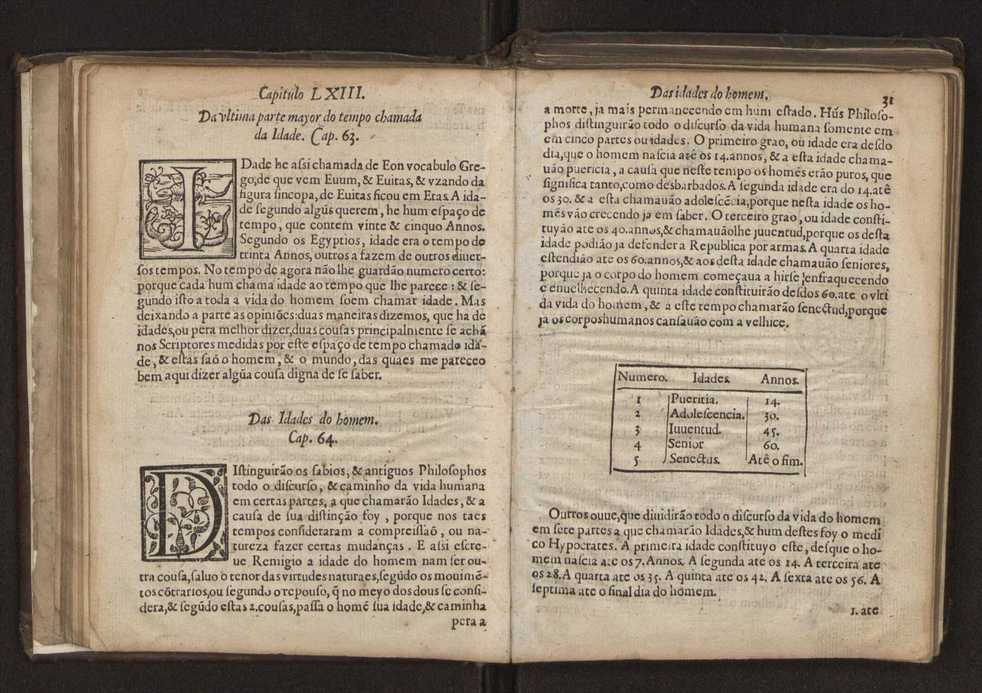 Capitulo LXIII.
Da vltima parte mayor do tempo chamada
da Idade. Cap. 63.
IDade he assi chamada de Eon vocabulo Gre-
go, de que vem Euum, & Euitas, & vzando da
figura sincopa, de Euitas ficou em Etas. A ida-
de segundo algũs querem, he hum espaço de
tempo, que contem vinte & cinquo Annos.
Segundo os Egyptios, idade era o tempo de
trinta Annos, outros a fazem de outros diuer-
sos tempos. No tempo de agora não lhe guardão numero certo:
porque cada hum chama idade ao tempo que lhe parece: & se-
gundo isto a toda a vida do homem soem chamar idade. Mas
deixando a parte as opiniões: duas maneiras dizemos, que ha de
idades, ou pera melhor dizer, duas cousas principalmente se achã
nos Scriptores medidas por este espaço de tempo chamado ida-
de, & estas saõ o homem, & o mundo, das quaes me pareceo
bem aqui dizer algũa cousa digna de se saber.
Das Idades do homem.
Cap. 64.
DIstinguirão os sabios, & antiguos Philosophos
todo o discurso, & caminho da vida humana
em certas partes, a que chamarão Idades, & a
causa de sua distinção foy, porque nos taes
tempos consideraram a compreissaõ, ou na-
tureza fazer certas mudanças. E assi escre-
ue Remigio a idade do homem nam ser ou-
tra cousa, saluo o tenor das virtudes naturaes, segũdo os mouimẽ-
tos cõtrarios, ou segundo o repouso, q̃ no meyo dos dous se consi-
dera, & segũdo estas 2. cousas, passa o homẽ sua idade, & caminha
pera a
Das idades do homem.
31
a morte, ja mais permanecendo em hum estado. Hũs Philoso-
phos distinguirão todo o discurso da vida humana somente em
em cinco partes ou idades. O primeiro grao, ou idade era desdo
dia, que o homem nascia atè os 14. annos, & a esta idade chama-
uão puericia, a causa que neste tempo os homẽs erão puros, que
significa tanto, como desbarbados. A segunda idade era do 14. atè
os 30. & a esta chamauão adolescẽcia, porque nesta idade os ho-
mẽs vão crecendo ja em saber. O terceiro grao, ou idade consti-
tuyão atè os 40. annos, & chamauãolhe juuentud, porque os desta
idade podião ja defender a Republica por armas. A quarta idade
estendião atè os 60. annos, & aos desta idade chamauão seniores,
porque ja o corpo do homem começaua a hirse jenfraquecendo
e enuelhecendo. A quinta idade constituirão desdos 60. atè o vlti
da vida do homem, & a este tempo chamarão senectud, porque
ja os corpos humanos cansauão com a velhice.
Numero. Idades. Annos.
1 Pueritia. 14.
2 Adolescencia. 30.
3 Iuuentud. 45.
4 Senior 60.
5 Senectus. Atê o fim.
Outros ouue, que diuidirão todo o discurso da vida do homem
em sete partes a que chamarão Idades, & hum destes foy o medi
co Hypocrates. A primeira idade constituyo este, desque o ho-
mem nascia atè os 7. Annos. A segunda atè os 14. A terceira atè
os 28. A quarta atè os 35. A quinta atè os 42. A sexta atè os 56. A
septima atè o final dia do homem.
1. atè